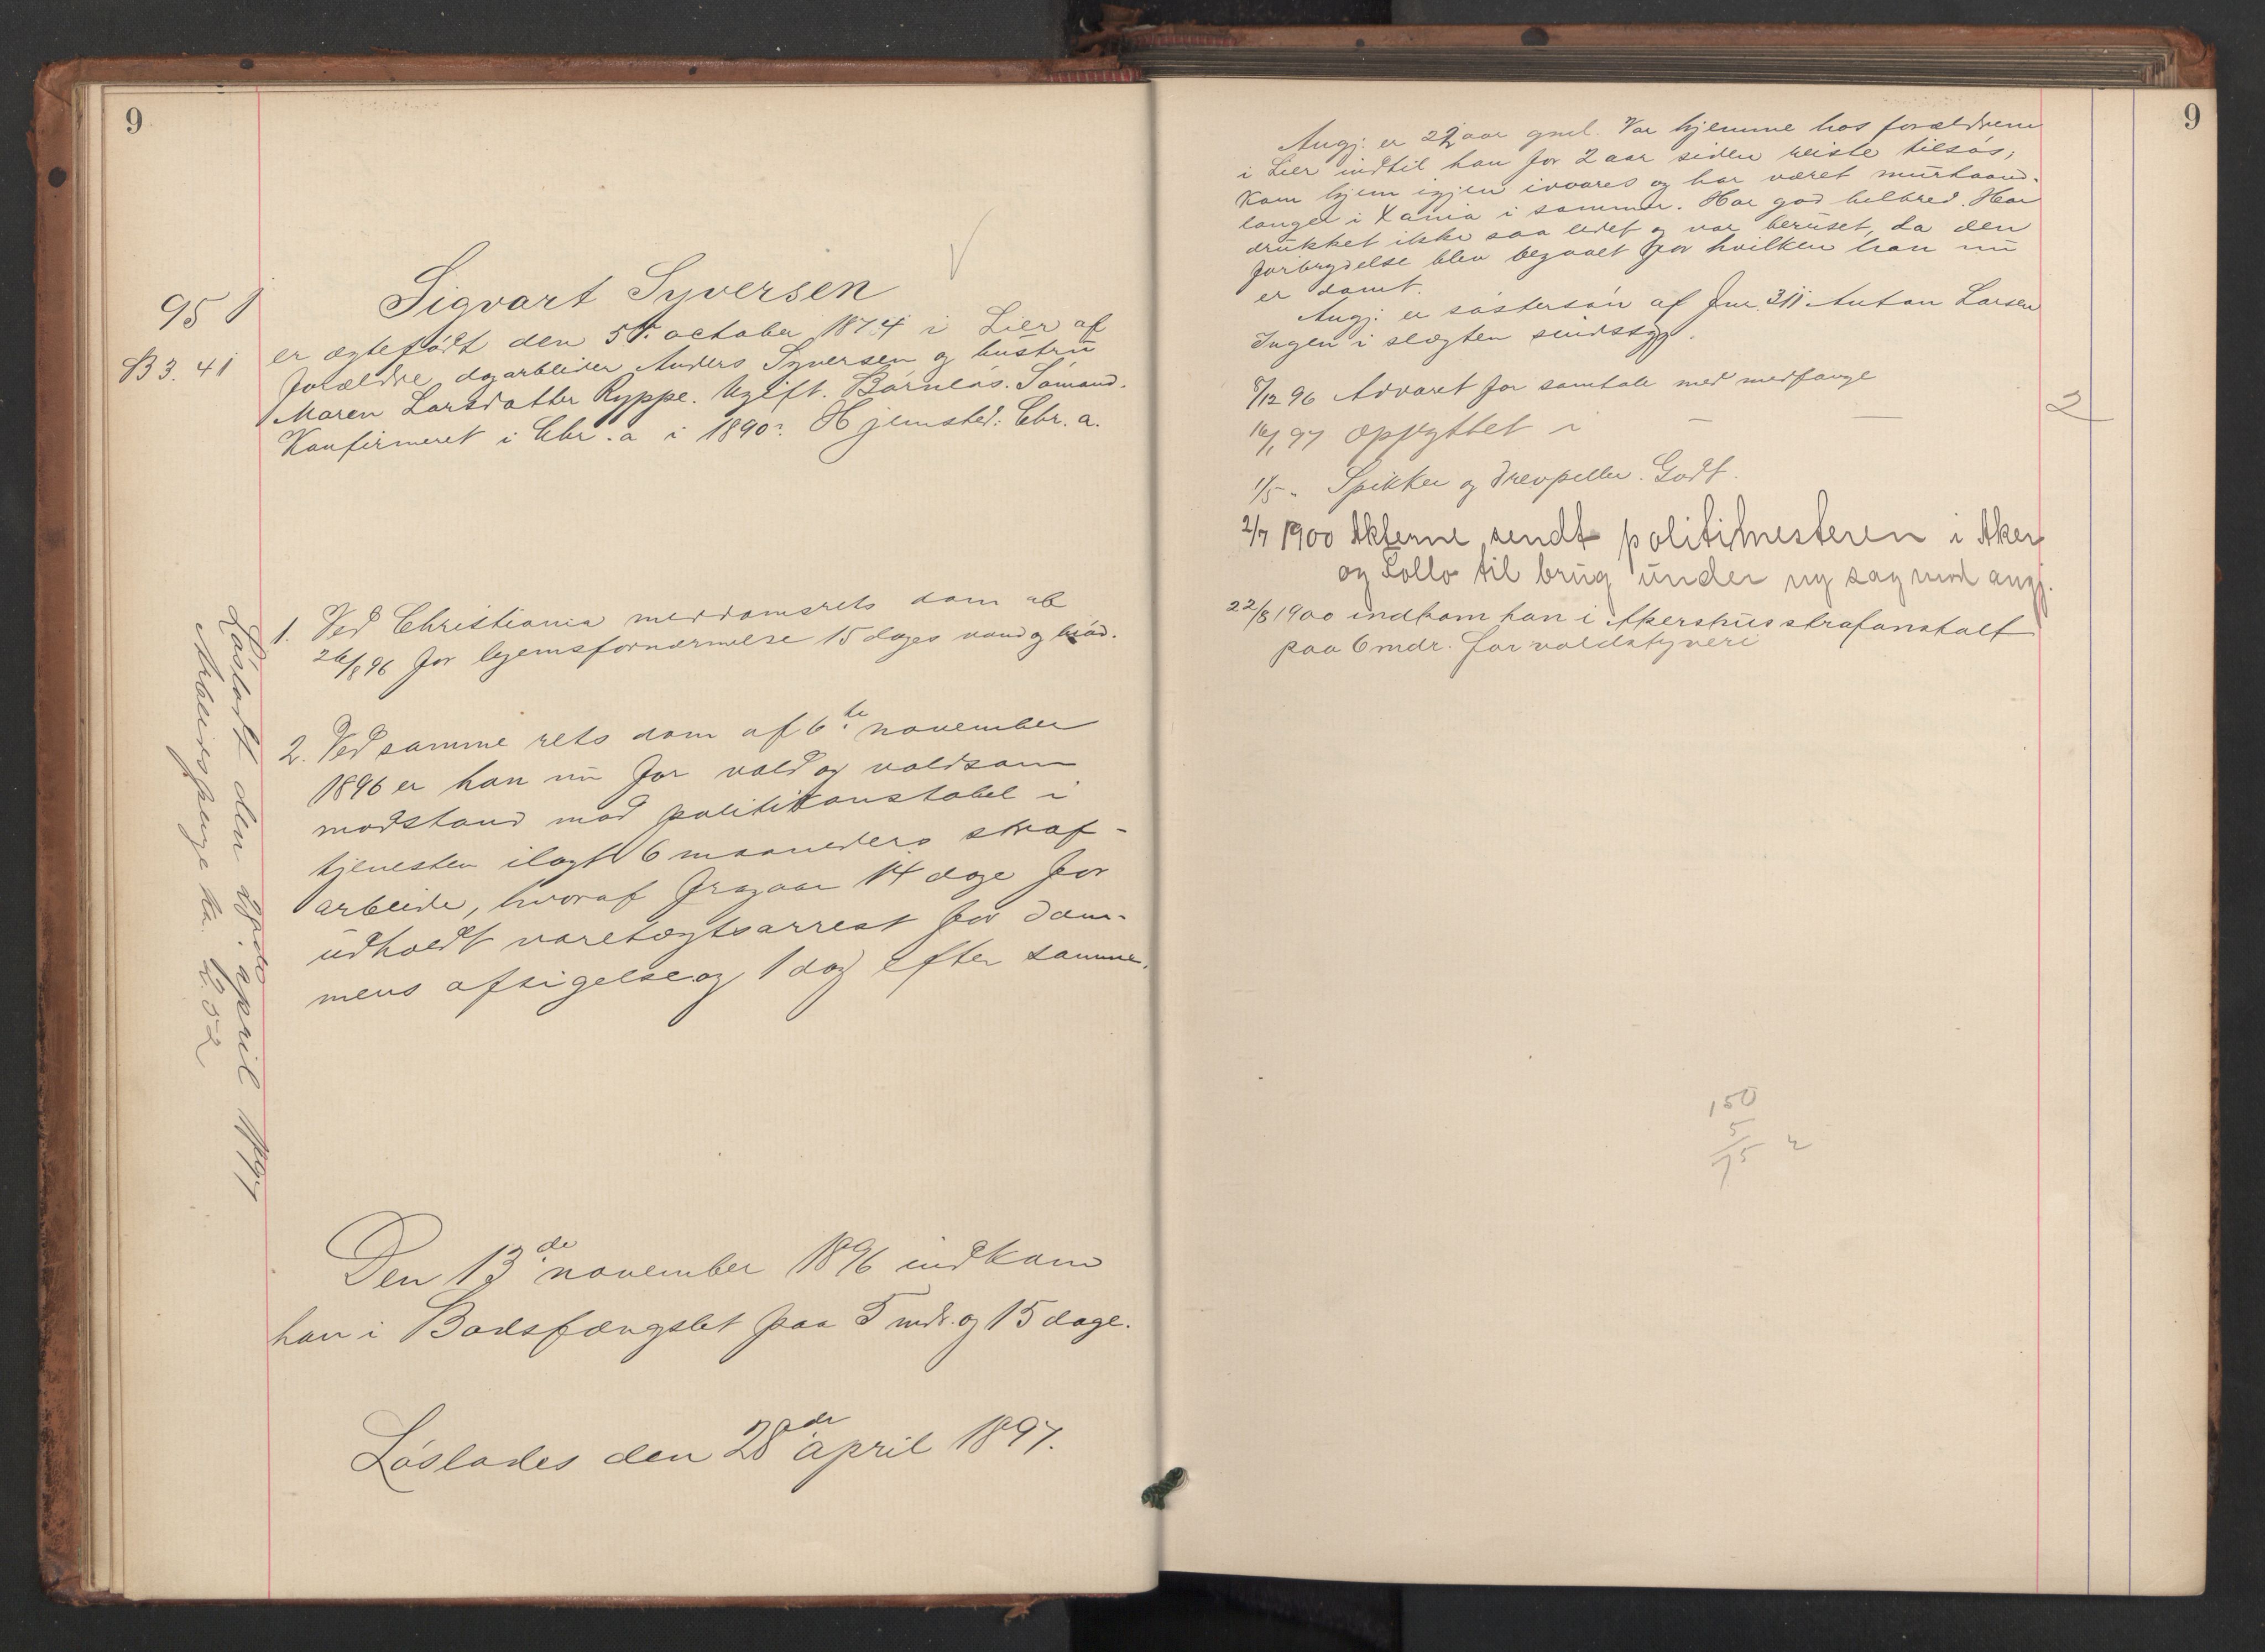 9
Sigvart Syversen
951
B 3. 41
er ægtefødt den 5t. october 1874 i Lier af
forældre dagarbeider Anders Syversen og hustru
Maren Larsdatter Ryppe. Ugift. Barnløs. Sømand.
Konfirmeret i Chr.a i 1890. Hjemsted: Chr.a.
1. Ved Christiania meddomsrets dom af
26/8 96 for legemsfornærmelse 15 dages vand og brød.
2. Ved samme rets dom af 6te november
1896 er han nu for vold og voldsom
modstand mod politikonstabel i
tjenesten ilagt 6 maaneders straf-
arbeide, hvoraf fragaar 14 dage for
udholdt varetægtsarrest før dom-
mens afsigelse og 1 dag efter samme.
Løsladt den 28de april 1897
Arbeidspenge kr. 2.52
Den 13de november 1896 indkom
han i Bodsfængslet paa 5 mdr. og 15 dage.
Løslades den 28de april 1897.
9
Angj. er 22 aar gml. Var hjemme hos forældrene
i Lier indtil han for 2 aar siden reiste tilsøs;
kom hjem igjen ivaares og har været murhaand-
langer i Xania i sommer. Har god helbred. Har
drukket ikke saa lidet og var beruset, da den
forbrydelse blev begaaet for hvilken han nu
er dømt.
Angj. er søstersøn af Fnr. 311 Anton Larsen
Ingen i slægten sindssyg.
8/12 96 Advaret for samtale med medfange
2
16/1 97 Opflyttet i — —
1/5 " Spikker og drevpiller. Godt.
2/7 1900 Akterne sendt politimesteren i Aker
og Follo til brug under ny sag mod angj.
22/8 1900 indkom han i Akershus strafanstalt
paa 6 mdr. for voldstyveri
150
5
75